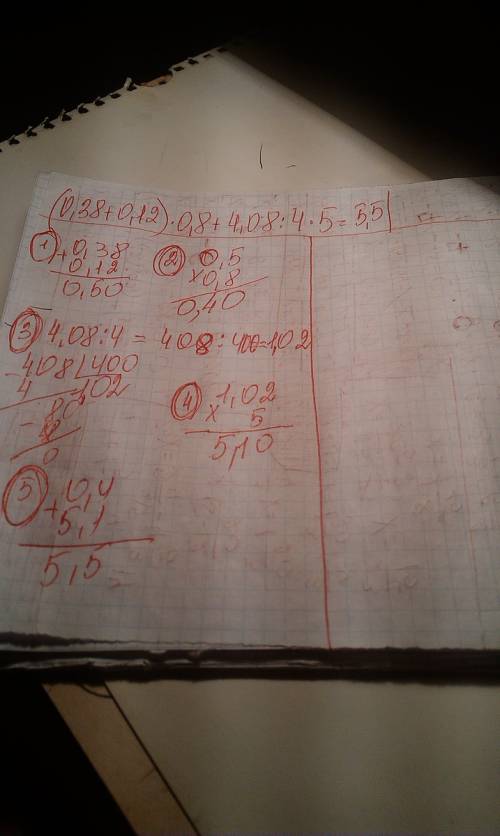 (0,38+0,12)·0,8+4,08:4·5=5,5
1 +0,38
0,12
0,50
2 0,5
×0,8
0,40
3 4,08:4 = 408:400=1,02
-408 400
4 1,02
-80
0
4 1,02
× 5
5,10
5 +0,4
5,1
5,5